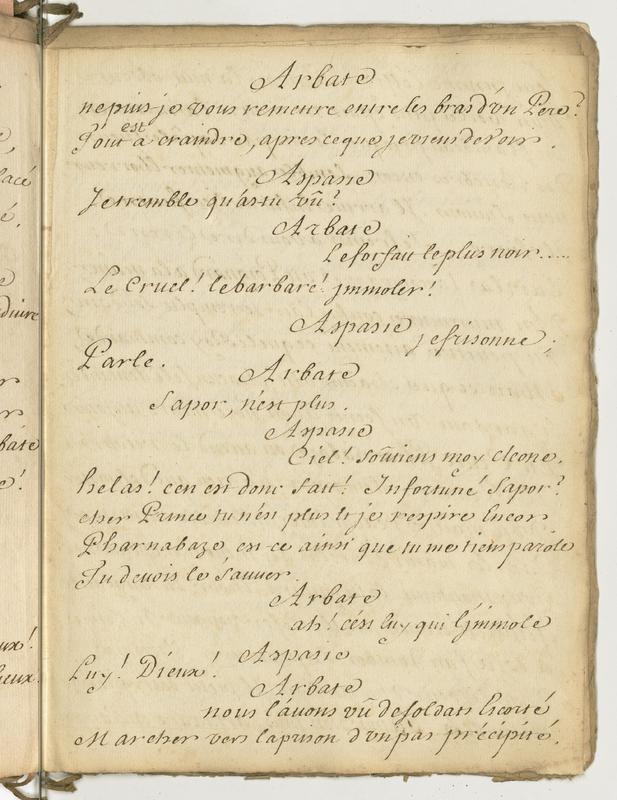 Arbate
ne puis je vous remettre entre les bras d'vn Pere?
Tout est a craindre, apres ce que je viens de voir.
Aspasie
Je tremble qu'as tu vû?
Arbate
Le forfait le plus noir.....
Le Cruel! le barbare! jmmoler!
Aspasie je frisonne;
Parle.
Arbate
Sapor, n'est plus.
Aspasie
Ciel! soûtiens moy cleone,
helas! c'en est donc fait! Infortuné Sapor?
cher Prince tu n'es plus et je respire Encor
Pharnabaze, est-ce ainsi que tu me tiens parole
Tu devois le Sauver.
Arbate
ah! c'est luy qui l'jmmole
Aspasie
Luy! Dieux!
Arbate
nous l'auons vû de soldats Escorté
Marcher vers la prison d'vn pas précipité.
lacé
é.
e
duire
r
r
bate
e!
ux!
ieux.